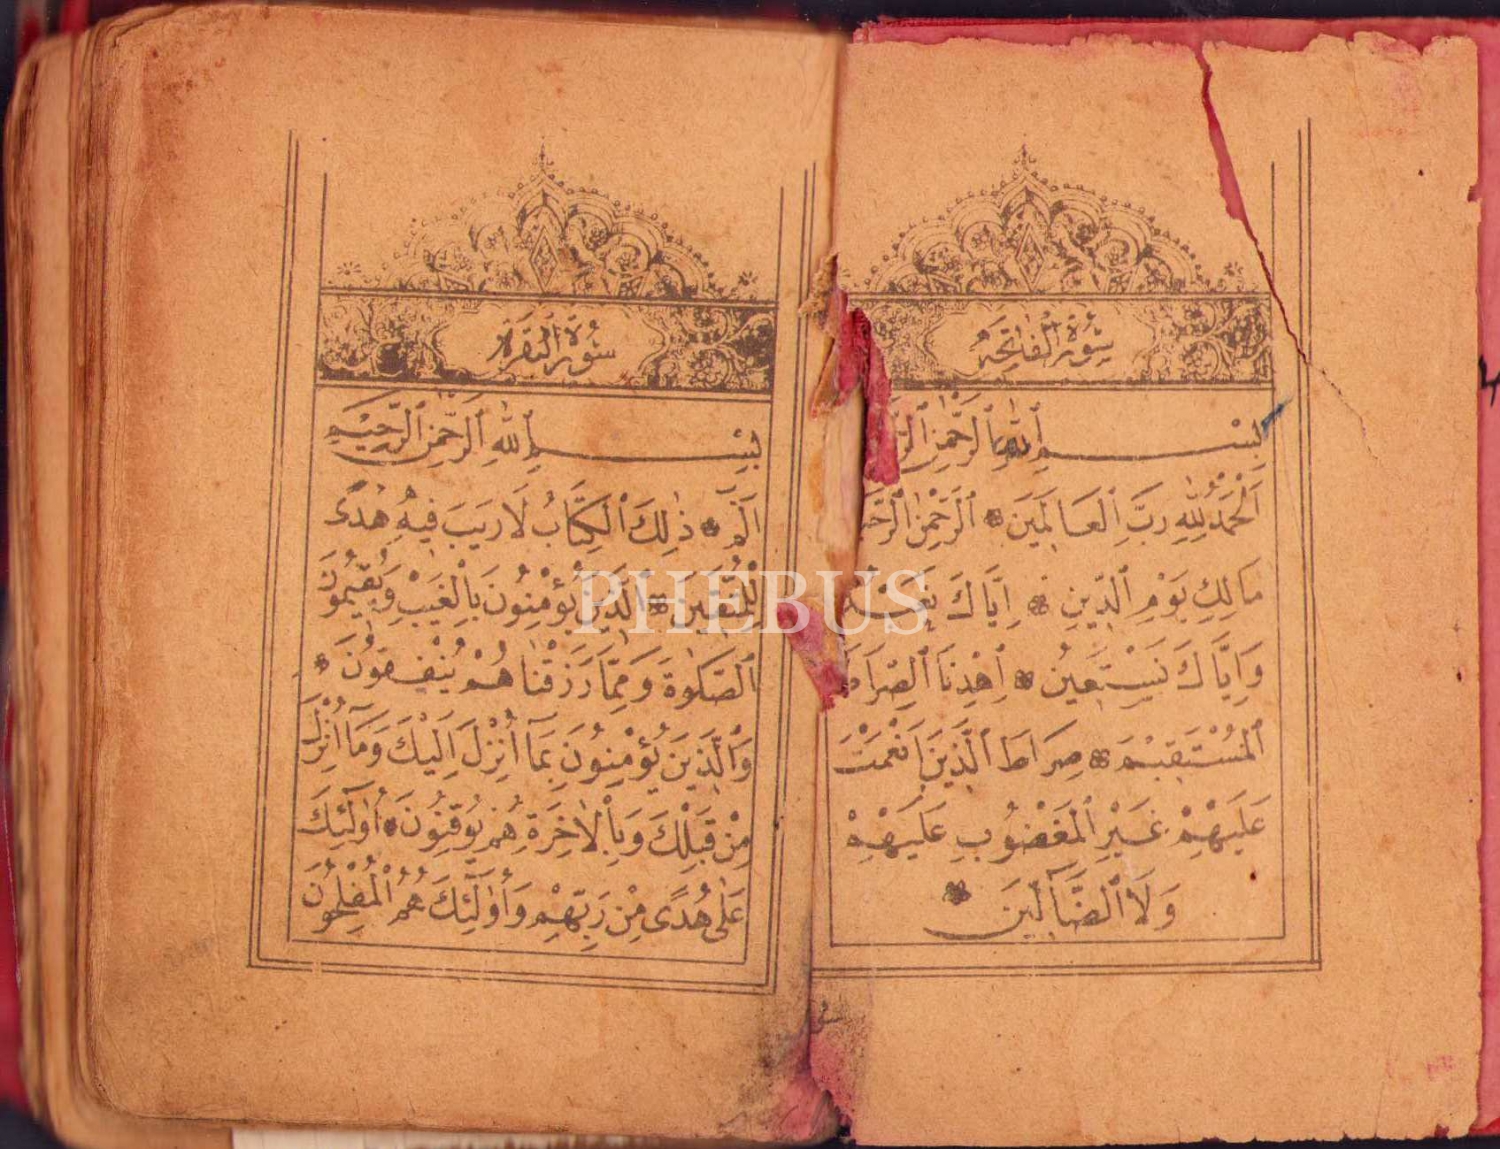 سورة الفاتحة
بسم الله الرحمن
اَلْحَمْدُ لِلّٰهِ رَبِّ الْعَالَمِينَ ❁ اَلرَّحْمٰنِ
مَالِكِ يَوْمِ الدِّينِ ❁ اِيَّاكَ نَعْبُدُ
وَاِيَّاكَ نَسْتَعِينُ ❁ اِهْدِنَا الصِّرَاطَ
الْمُسْتَقِيمَ ❁ صِرَاطَ الَّذِينَ اَنْعَمْتَ
عَلَيْهِمْ غَيْرِ الْمَغْضُوبِ عَلَيْهِمْ
وَلَا الضَّآلِّينَ ❁
سورة البقرة
بِسْمِ اللهِ الرَّحْمٰنِ الرَّحِيمِ
الٓمٓ ❁ ذٰلِكَ الْكِتَابُ لَا رَيْبَ فِيهِ هُدًى
لِلْمُتَّقِينَ ❁ اَلَّذِينَ يُؤْمِنُونَ بِالْغَيْبِ وَيُقِيمُونَ
الصَّلٰوةَ وَمِمَّا رَزَقْنَاهُمْ يُنْفِقُونَ ❁
وَالَّذِينَ يُؤْمِنُونَ بِمَآ اُنْزِلَ اِلَيْكَ وَمَآ اُنْزِلَ
مِنْ قَبْلِكَ وَبِالْاٰخِرَةِ هُمْ يُوقِنُونَ ❁ اُولٰٓئِكَ
عَلٰى هُدًى مِنْ رَبِّهِمْ وَاُولٰٓئِكَ هُمُ الْمُفْلِحُونَ
PHEBUS